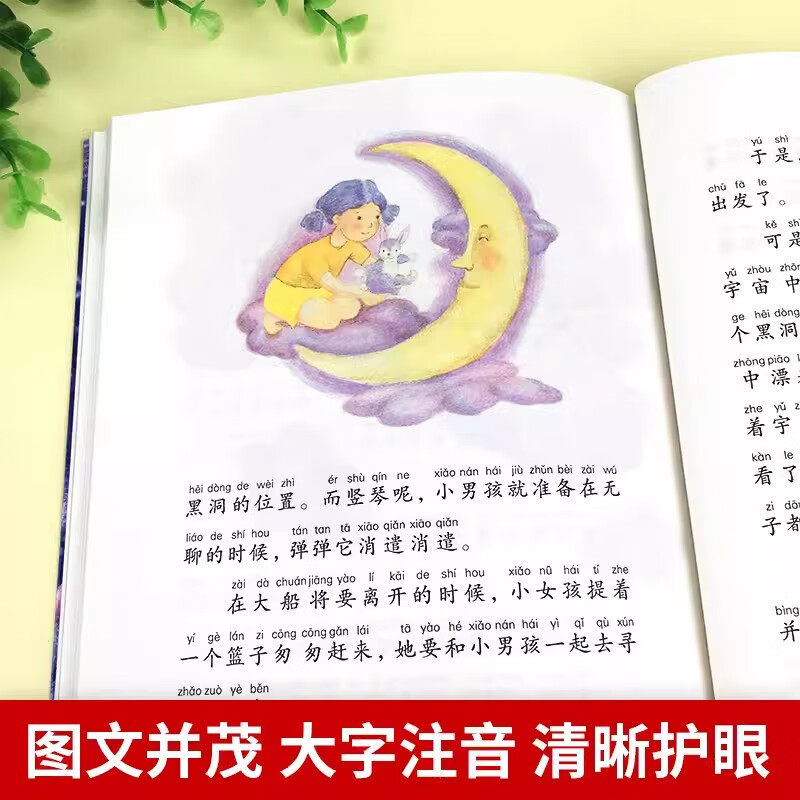 hēi dòng de wèi zhì ér shù qín ne xiǎo nán hái jiù zhǔn bèi zài wú
黑洞的位置。而竖琴呢，小男孩就准备在无
liáo de shí hou tán tan tā xiāo qiǎn xiāo qiǎn
聊的时候，弹弹它消遣消遣。
zài dà chuán jiāng yào lí kāi de shí hou xiǎo nǚ hái tí zhe
在大船将要离开的时候，小女孩提着
yí gè lán zi cōng cōng gǎn lái tā yào hé xiǎo nán hái yì qǐ qù xún
一个篮子匆匆赶来，她要和小男孩一起去寻
zhǎo zuò yè běn
yú shì
于是
chū fā le
出发了。
kě
可是
yǔ zhòu
宇宙中
ge hēi dòng
个黑洞
zhòng piāo
中漂
zhe yǔ
着宇
kàn le
看了
zi
子都
bìng
并
图文并茂 大字注音 清晰护眼